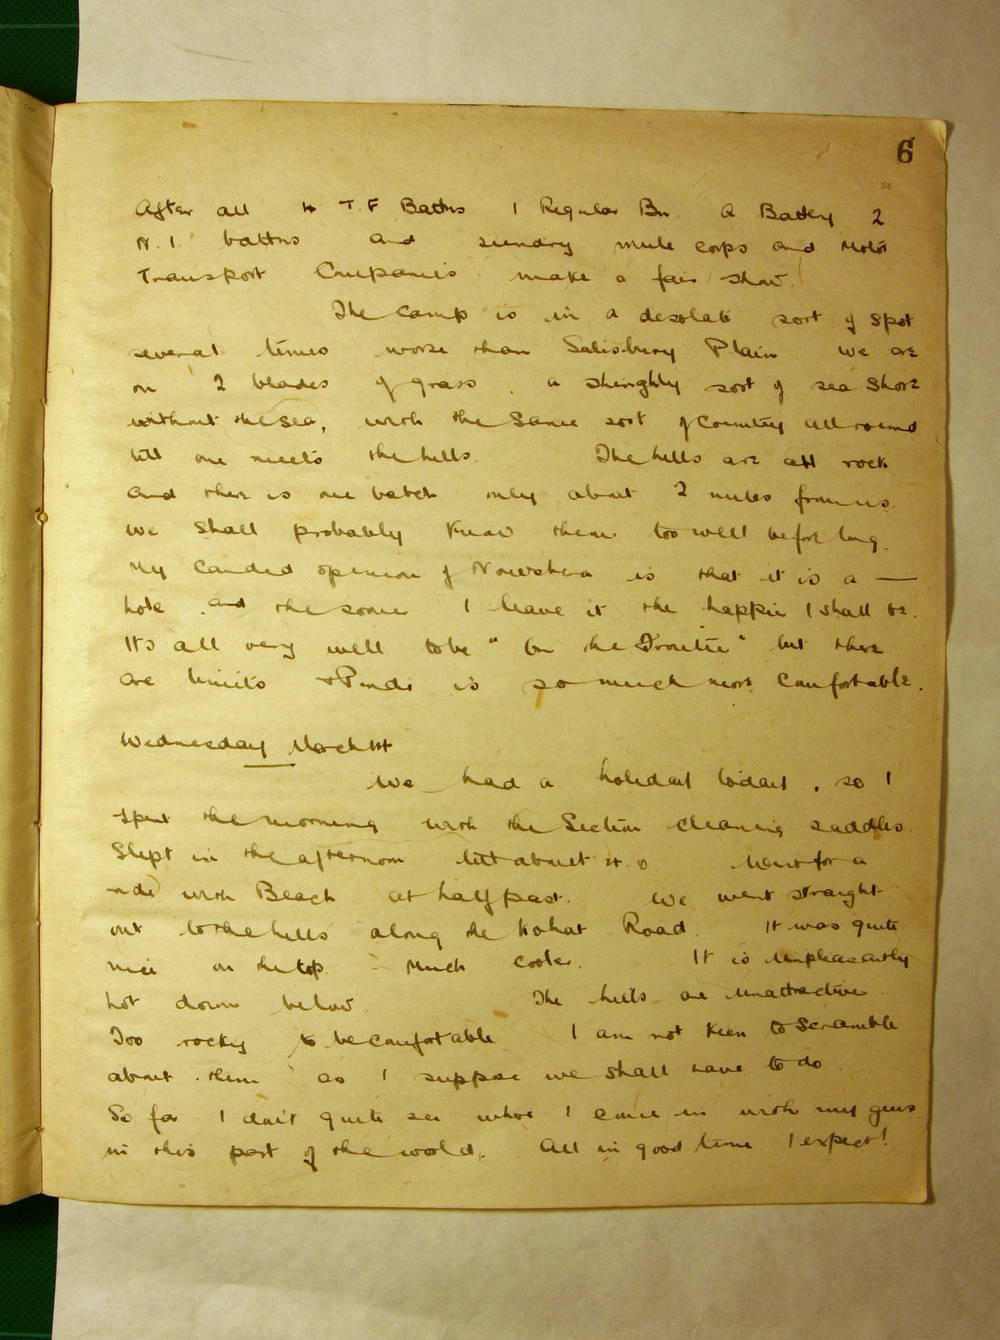 6
After all 4 T.F Battns 1 Regular Bn. A Battery 2
N.I. battns and sundry mule corps and Motor
Transport Companies make a fair show.
The Camp is in a desolate sort of spot
several times worse than Salisbury Plain. We are
on 2 blades of grass, a shinghly sort of sea shore
without the sea, with the same sort of country all round
till one meets the hills. The hills are all rock
and there is one batch only about 2 miles from us.
We shall probably know them too well before long.
My candid opinion of Nowshera is that it is a —
hole and the sooner I leave it the happier I shall be.
Its all very well to be "on the Frontier" but there
are limits & Pindi is so much more comfortable.
Wednesday March 1st
We had a holiday today, so I
spent the morning with the Section cleaning saddles.
Slept in the afternoon till about 4.0 Went for a
ride with Beach at half past. We went straight
out to the hills along the Kohat Road. It was quite
nice on the top. Much cooler. It is unpleasantly
hot down below. The hills are unattractive.
Too rocky to be comfortable I am not keen to scramble
about them as I suppose we shall have to do.
So far I don't quite see where I come in with my guns
in this part of the world. All in good time I expect!